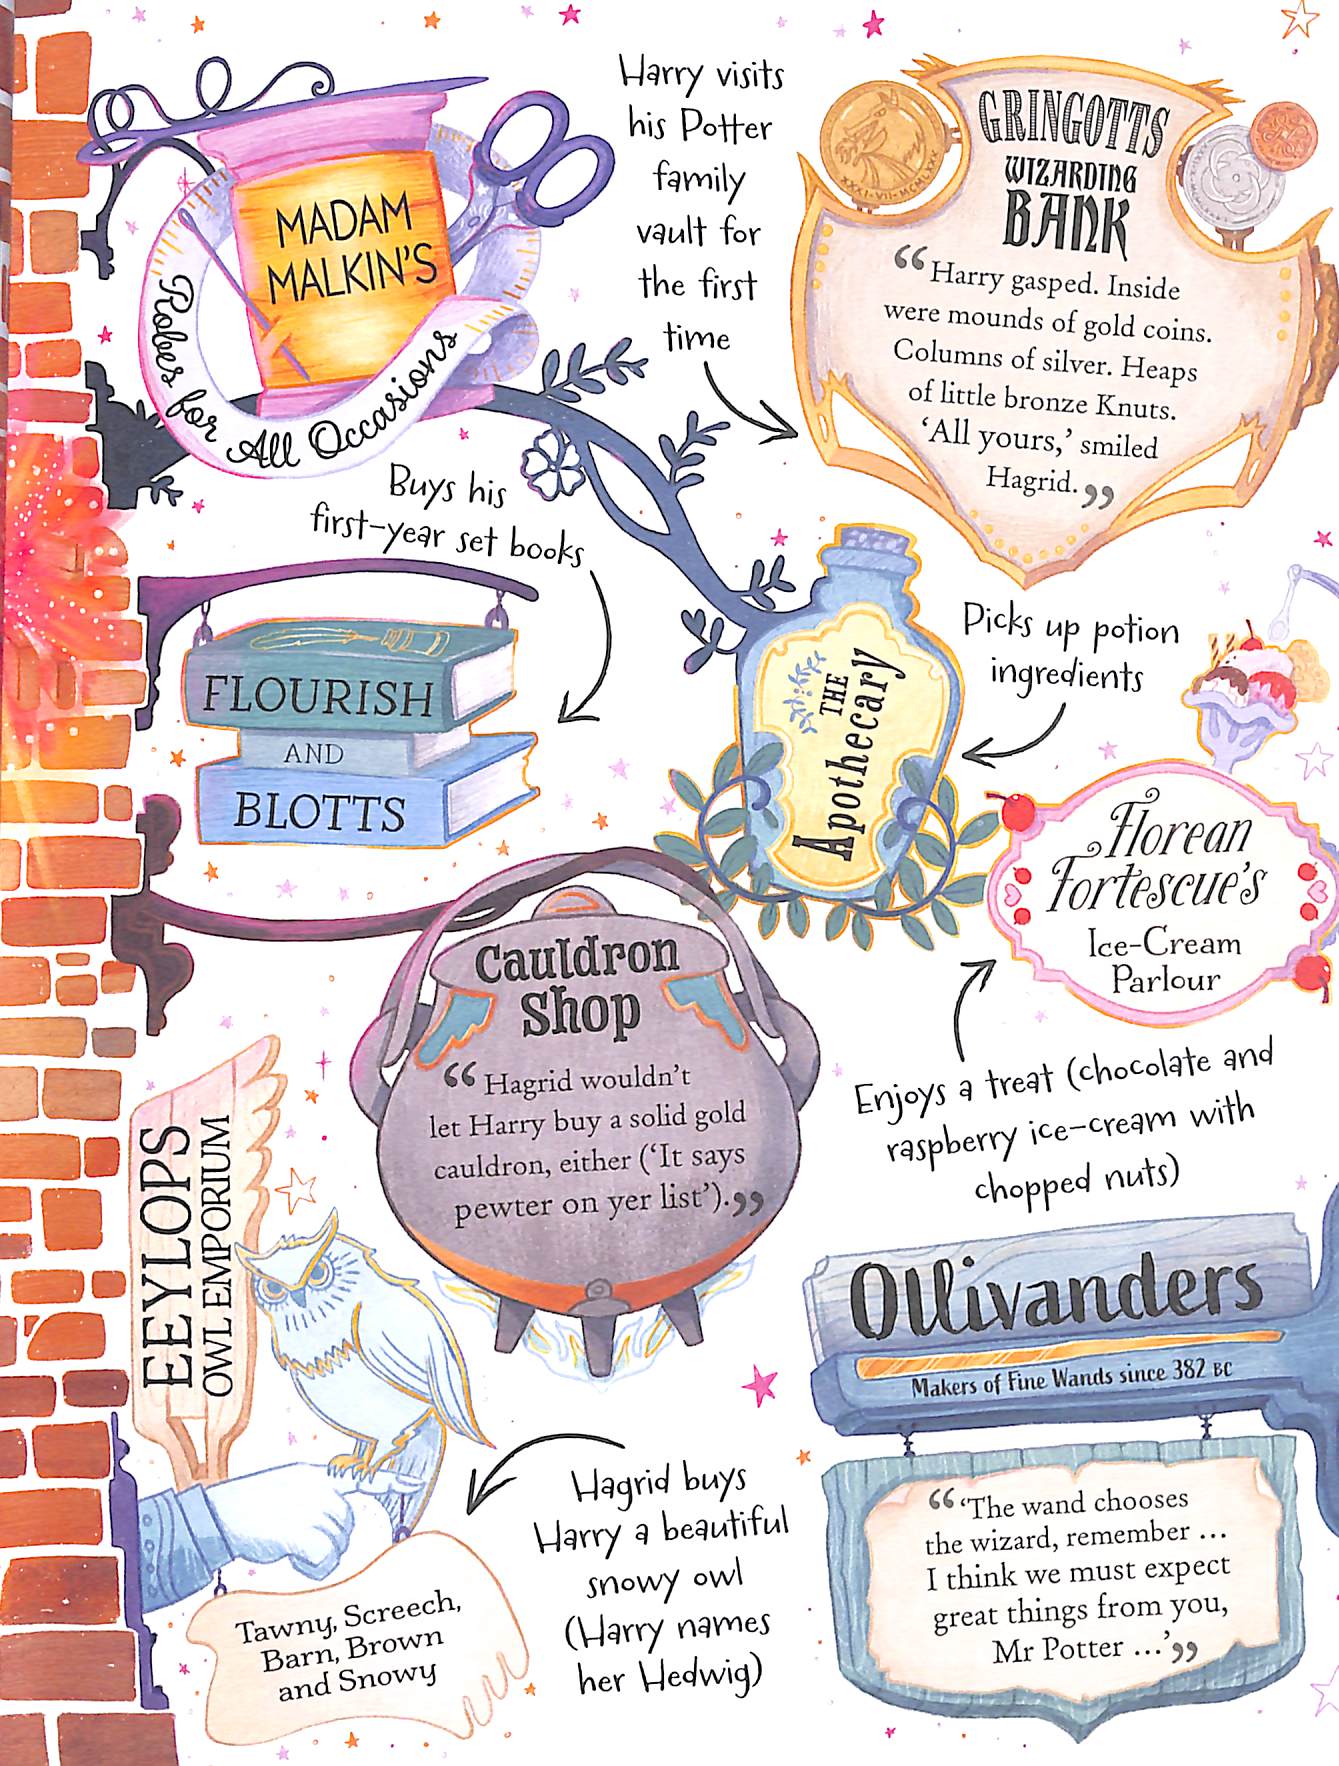 MADAM
MALKIN'S
Robes for All Occasions
Harry visits
his Potter
family
vault for
the first
time
GRINGOTTS
WIZARDING
BANK
“Harry gasped. Inside
were mounds of gold coins.
Columns of silver. Heaps
of little bronze Knuts.
‘All yours,’ smiled
Hagrid.”
Buys his
first-year set books
FLOURISH
AND
BLOTTS
THE
Apothecary
Picks up potion
ingredients
Florean
Fortescue's
Ice-Cream
Parlour
Enjoys a treat (chocolate and
raspberry ice-cream with
chopped nuts)
Cauldron
Shop
“Hagrid wouldn't
let Harry buy a solid gold
cauldron, either (‘It says
pewter on yer list’).”
EEYLOPS
OWL EMPORIUM
Tawny, Screech,
Barn, Brown
and Snowy
Hagrid buys
Harry a beautiful
snowy owl
(Harry names
her Hedwig)
Ollivanders
Makers of Fine Wands since 382 BC
“‘The wand chooses
the wizard, remember ...
I think we must expect
great things from you,
Mr Potter ...’”